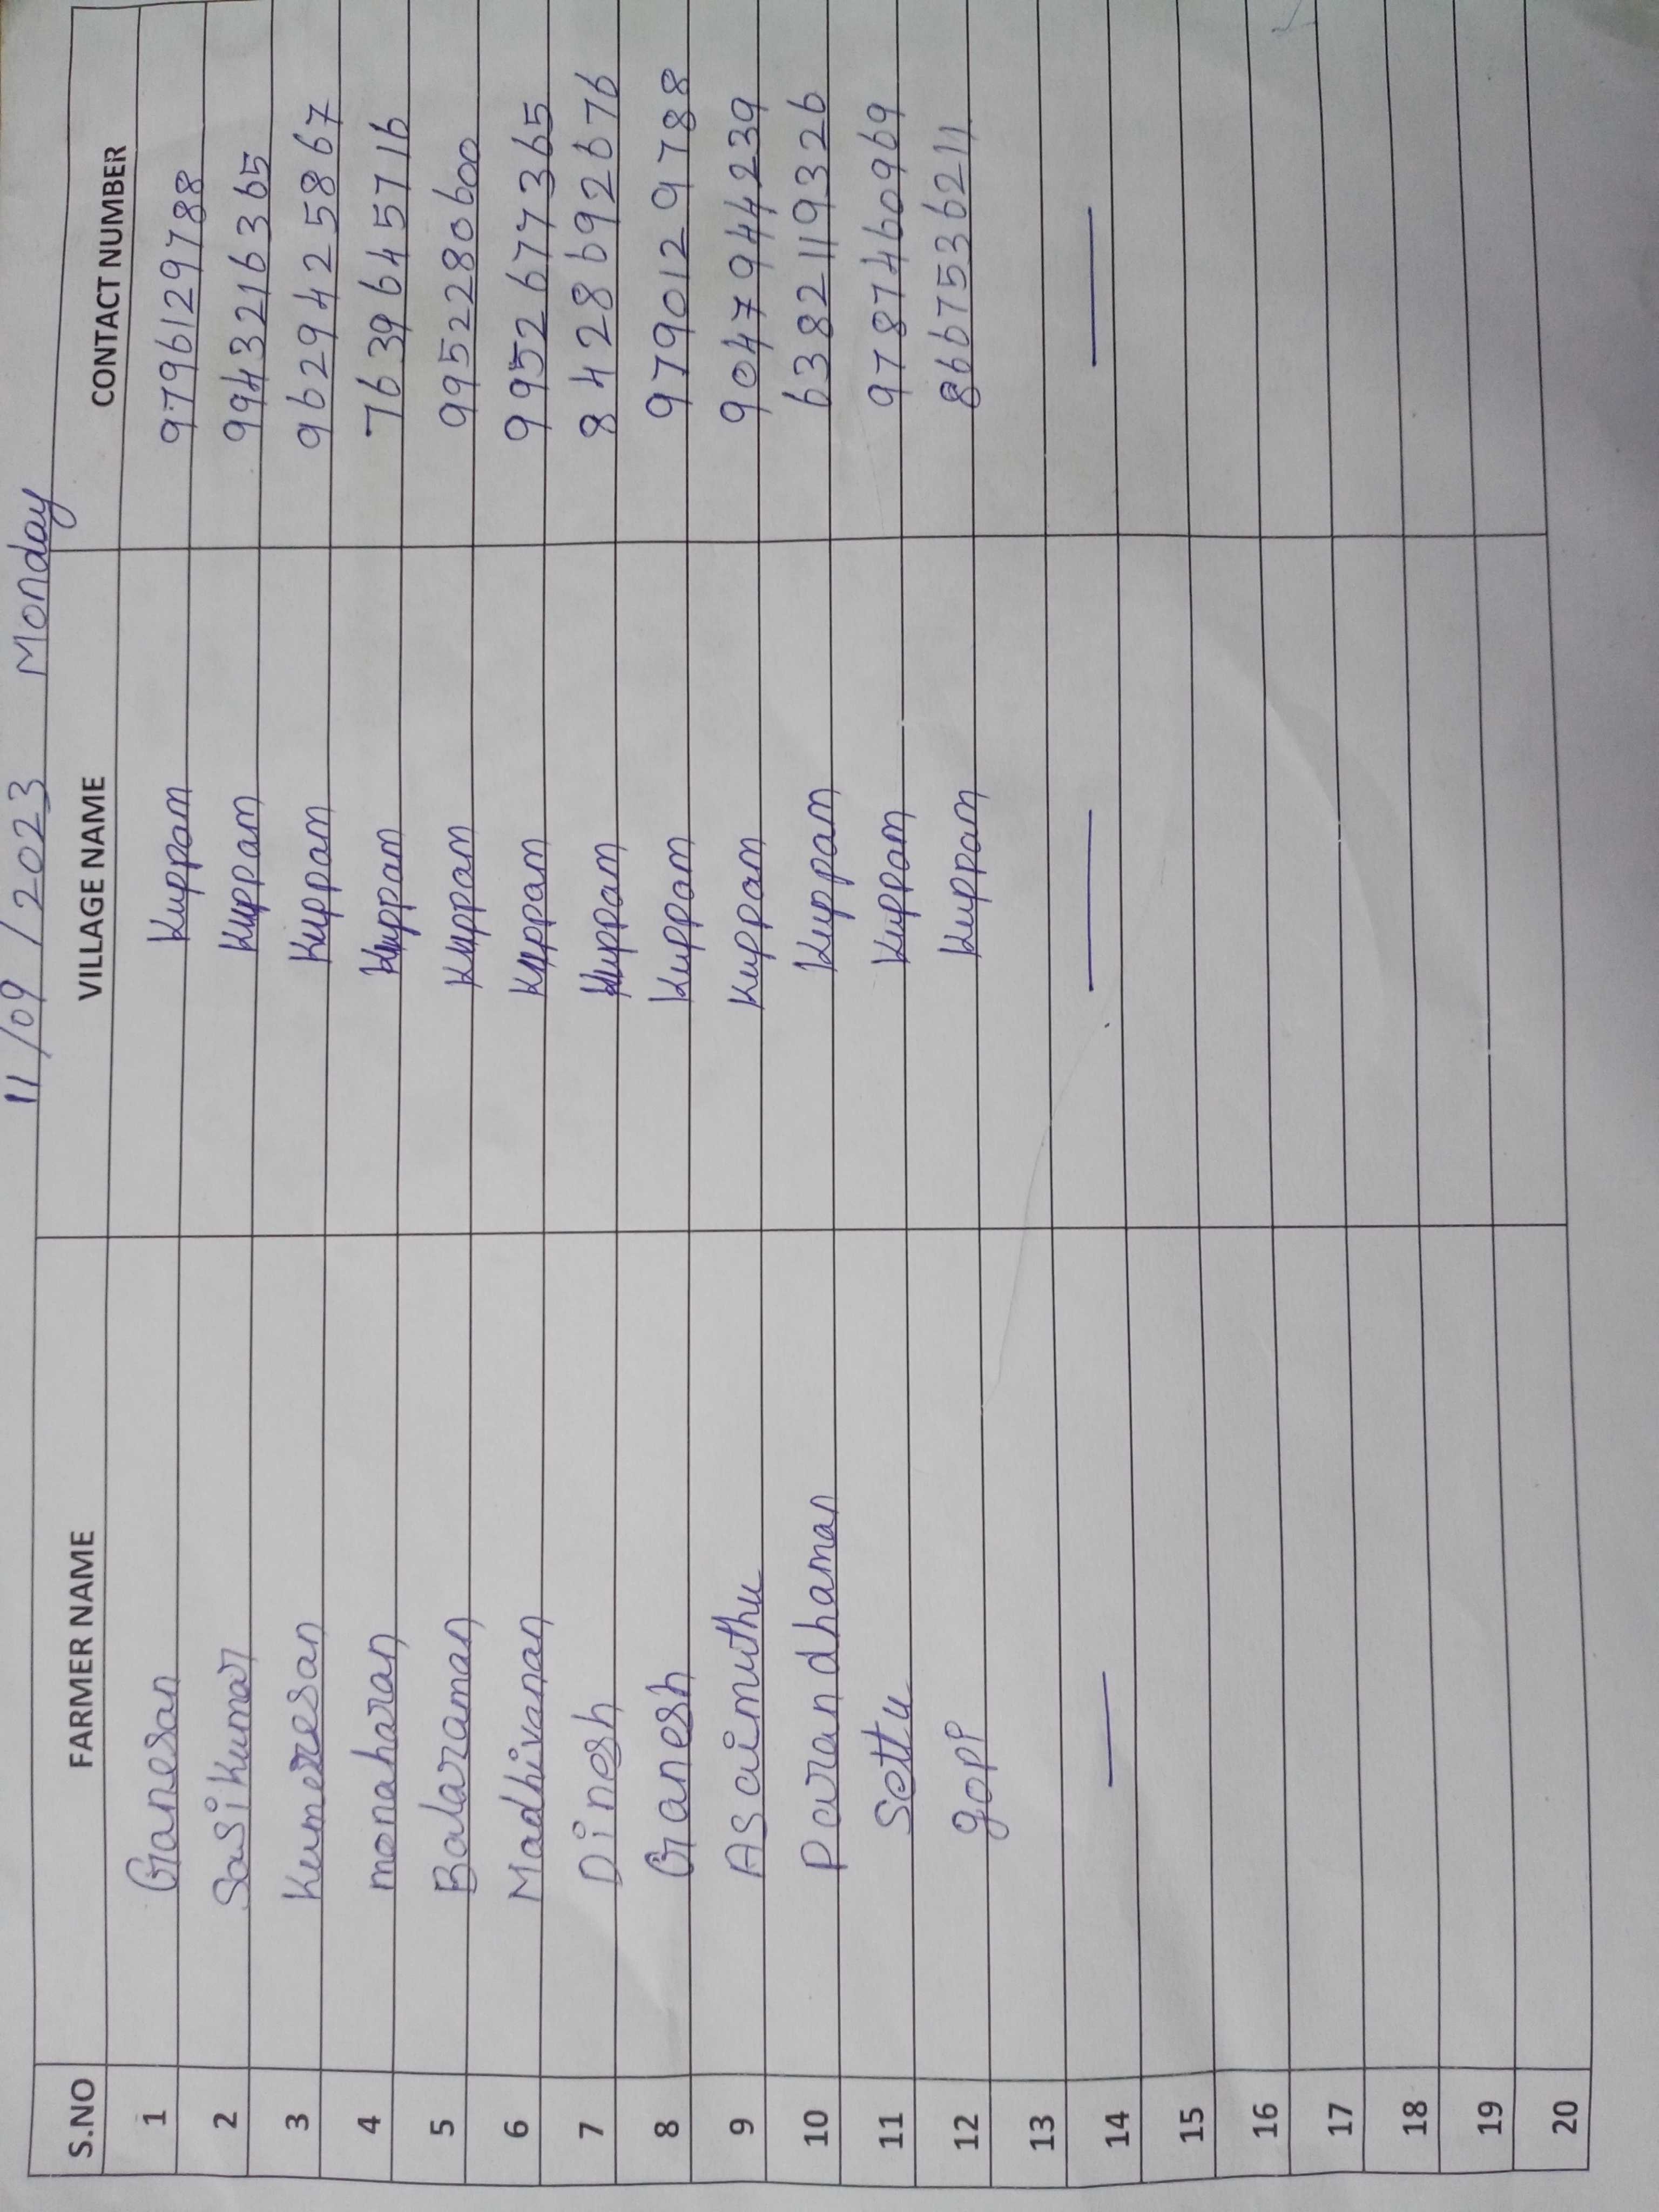 11/09/2023 Monday
S.NO FARMER NAME VILLAGE NAME CONTACT NUMBER
1 Ganesan Kuppam 9796129788
2 Sasikumar Kuppam 9943216365
3 Kumeresan Kuppam 9629425867
4 manaharan Kuppam 7639645716
5 Balaraman Kuppam 9952280600
6 Madhivanan Kuppam 9952677365
7 Dinesh Kuppam 8428692676
8 Ganesh Kuppam 9790129788
9 Asaimuthu Kuppam 9047944239
10 Parandhaman Kuppam 6382119326
11 Settu Kuppam 9787460969
12 gopi Kuppam 8667536211
13
14 — — —
15
16
17
18
19
20